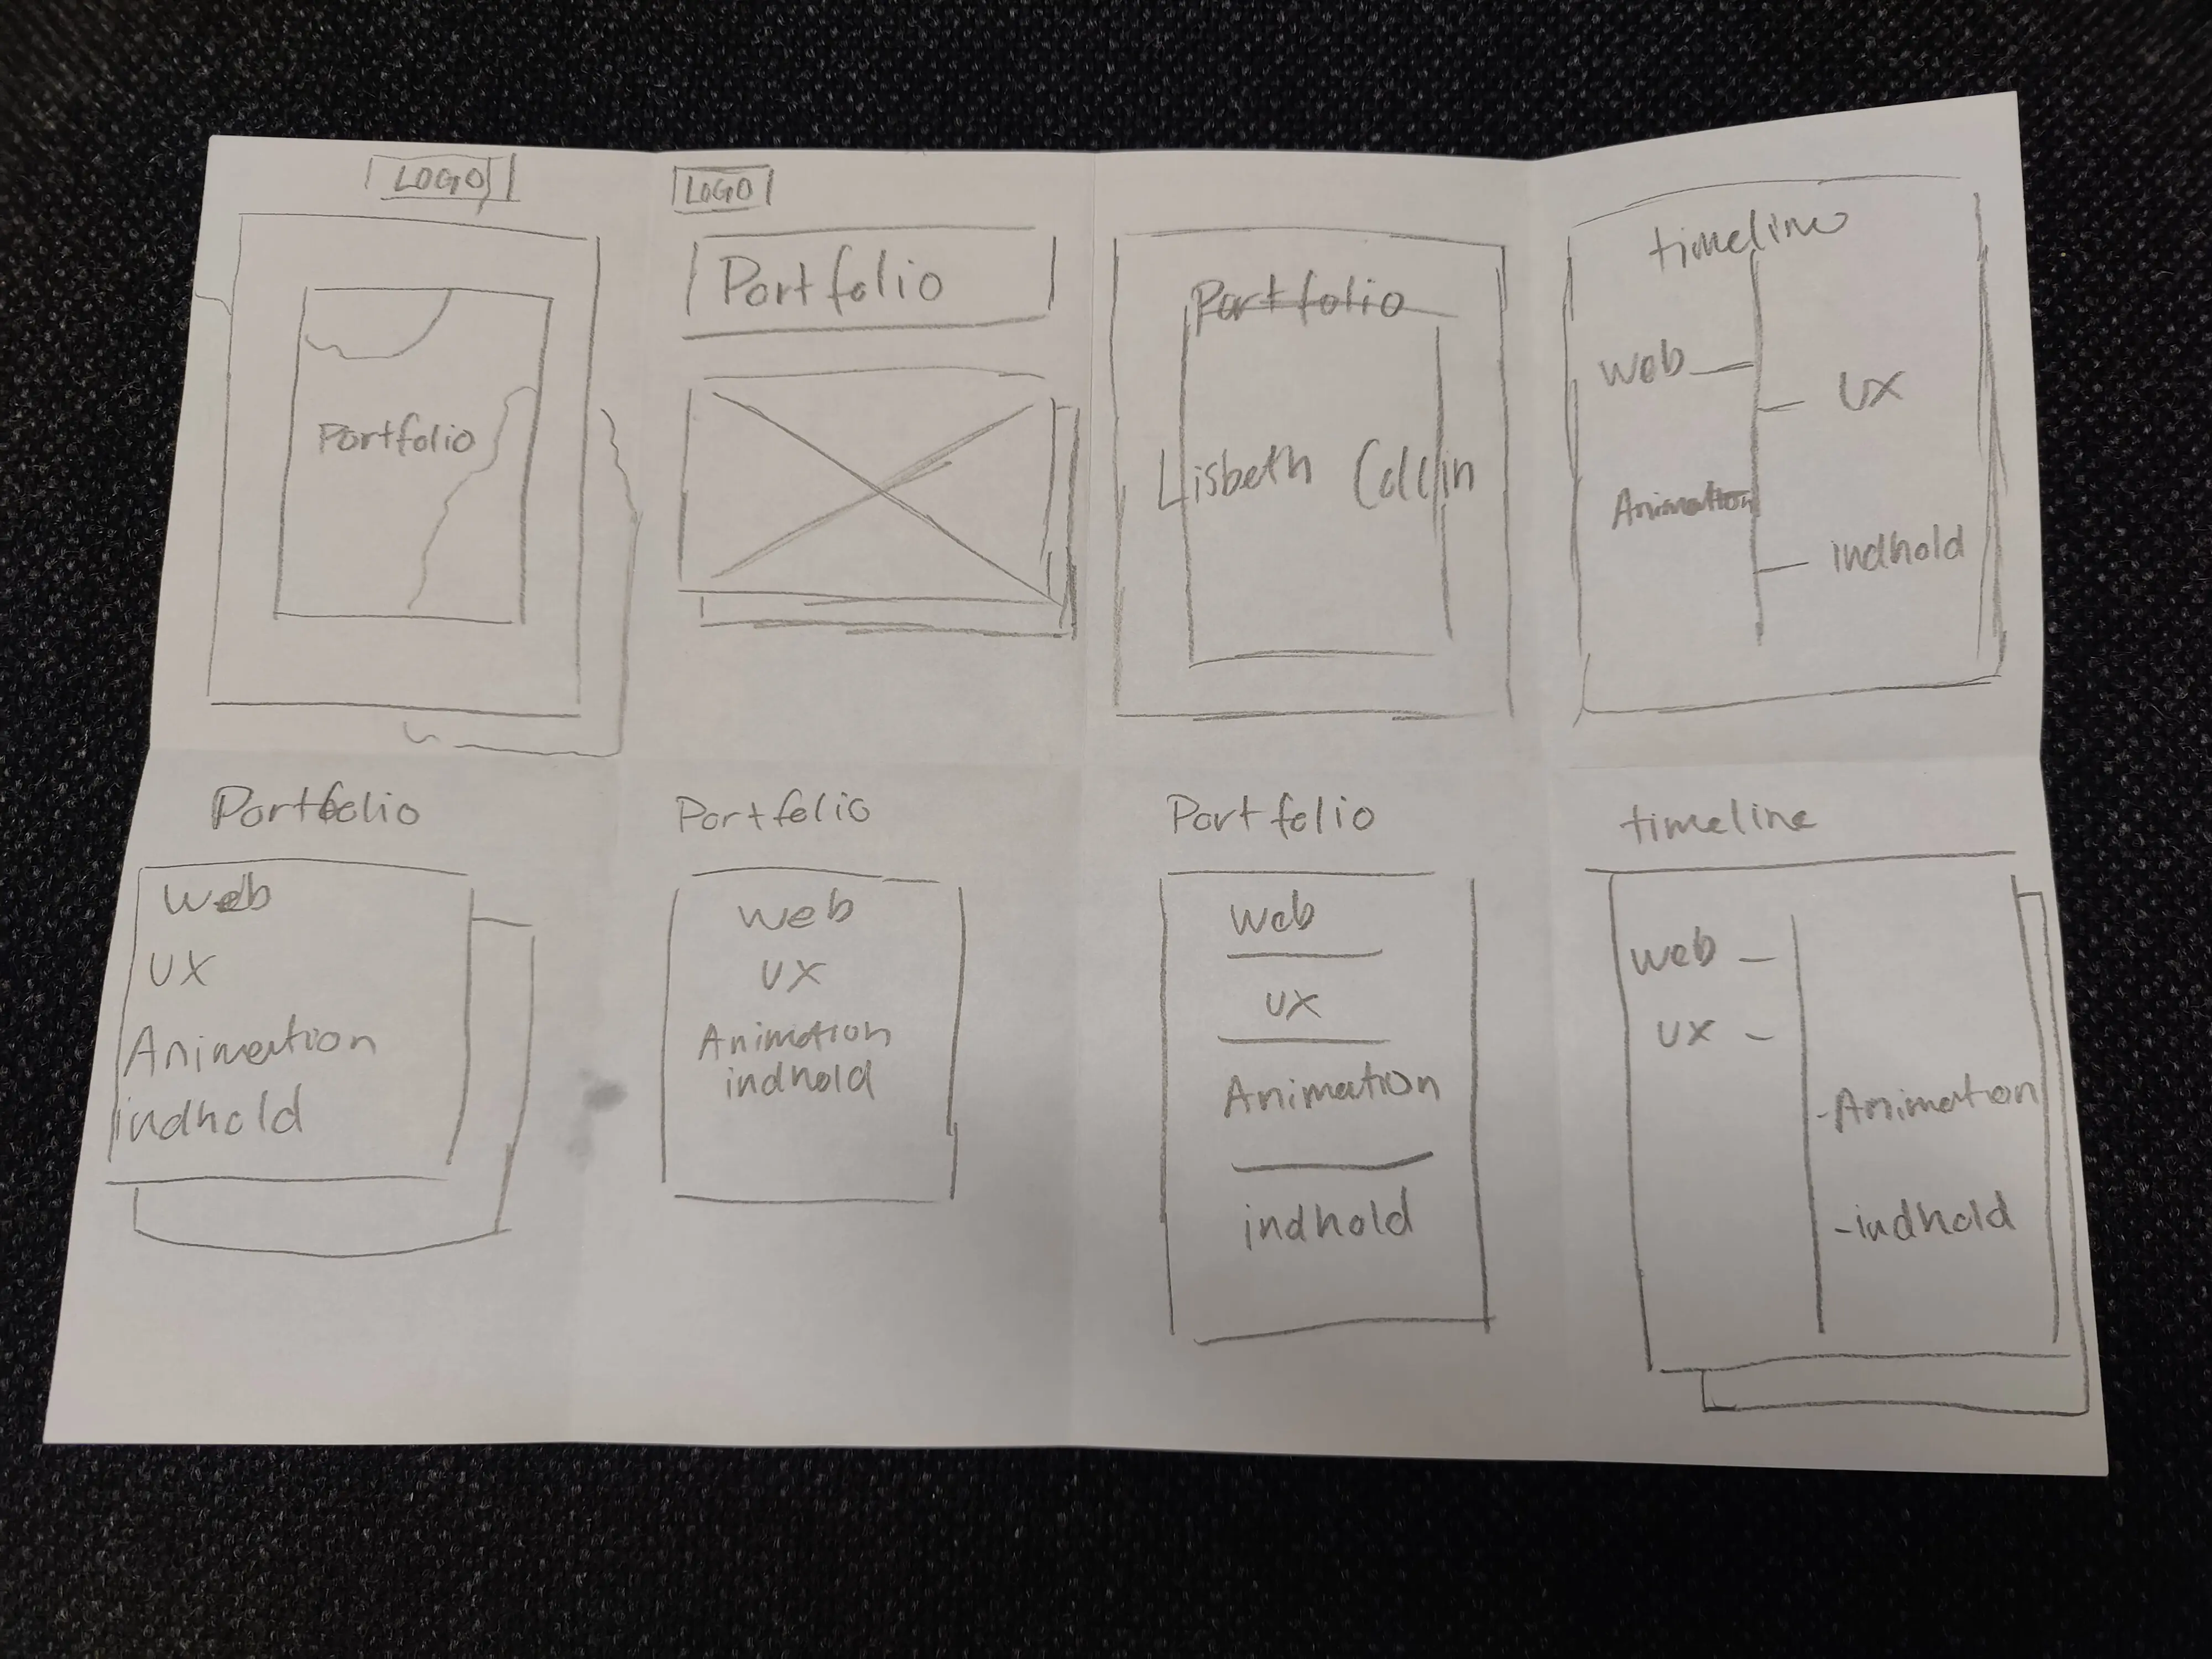 LOGO
Portfolio
LOGO
Portfolio
Portfolio
Lisbeth Collin
timeline
Web
UX
Animation
indhold
Portfolio
Web
UX
Animation
indhold
Portfolio
Web
UX
Animation
indhold
Portfolio
Web
UX
Animation
indhold
timeline
Web -
UX -
-Animation
-indhold